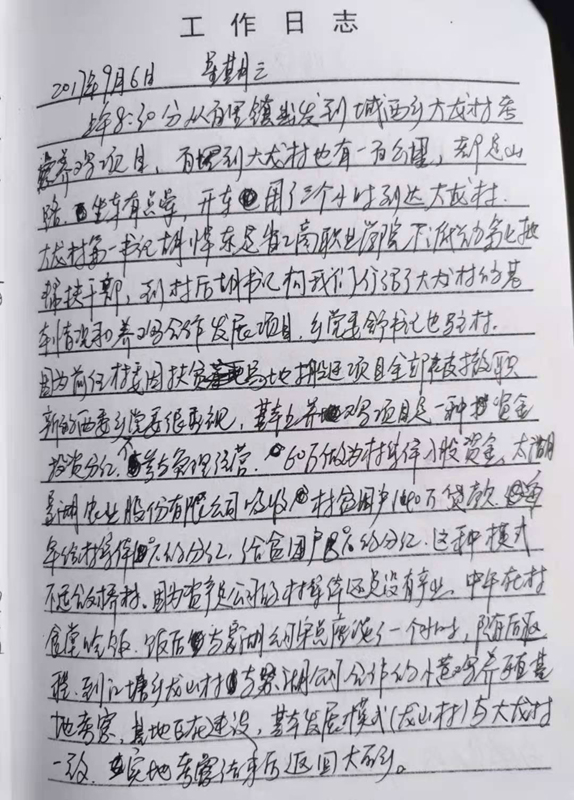 工作日志
2017年9月6日 星期三
上午8:30分从百里镇出发到城西乡大龙村考
察养鸡项目,百里到大龙村也有一百公里,都是山
路.坐车有点晕,开车用了三个小时到达大龙村.
大龙村第一书记胡 东是省工商职业学院下派的第七批
帮扶干部,到村后胡书记向我们介绍了大龙村的基
本情况和养鸡合作发展项目,乡党委舒书记也到村.
因为前任村委因扶贫易地搬迁项目全部被撤职
新的两委乡党委很重视,基本上养鸡项目是一种投资金
投资分红,不参与负责经营. 60万做为村集体入股资金,太湖
湖农业股份有限公司吸收村贫困户140万贷款.每
年给村集体 %的分红,给贫困户 %的分红.这种模式
不适合我村.因为资产是公司的村集体还是没有产业.中午在村
食堂吃饭.饭后与 湖公司宋总座谈了一个小时,随后返
程.到江塘乡龙山村与 湖公司合作的小 鸡养殖基
地考察,基地正在建设,基本发展模式(龙山村)与大龙村
一致.实地考察结束后返回